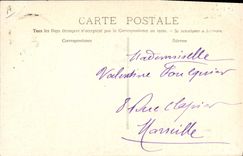 CARTE POSTALE
Tous les Pays étrangers n'acceptent pas la Correspondance au recto. — Se renseigner à la Poste
Correspondance
Adresse
Mademoiselle
Valentine Foulquier
8 Rue Clapier
Marseille